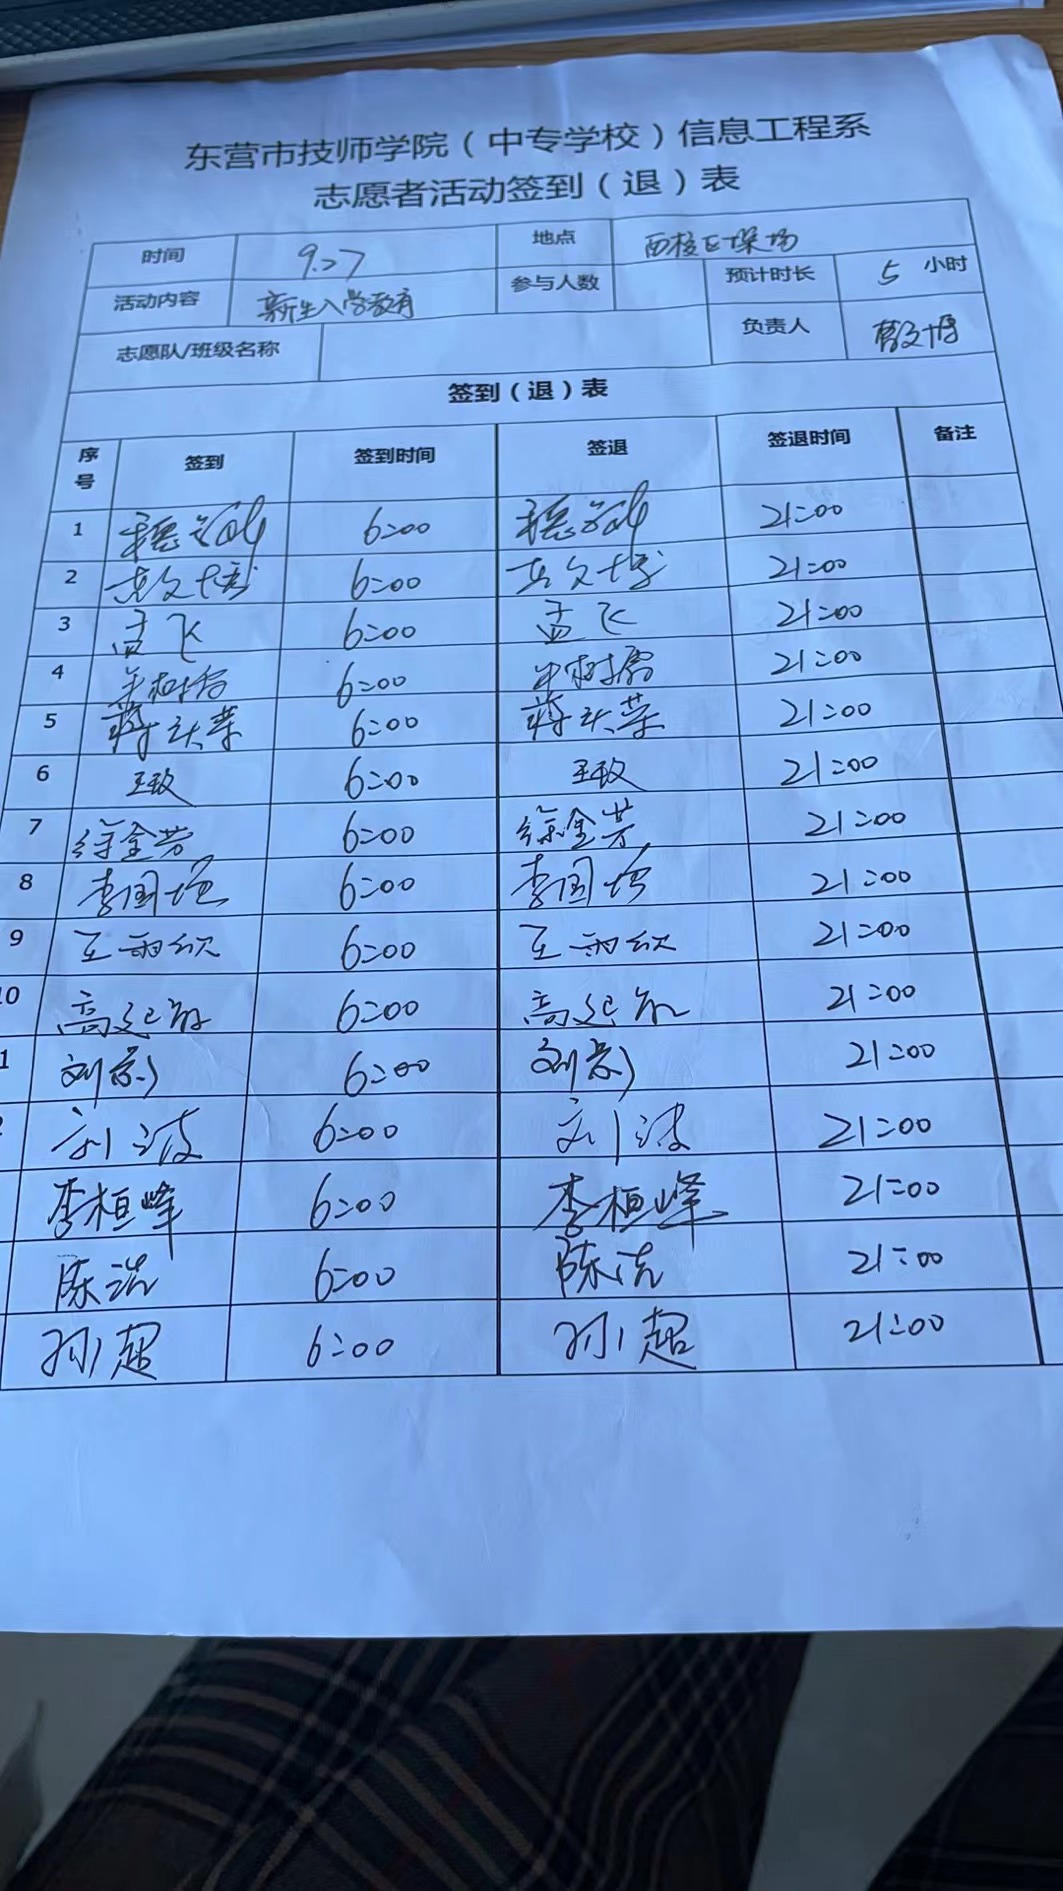 东营市技师学院（中专学校）信息工程系
志愿者活动签到（退）表
时间 9.27 地点 西校区操场
活动内容 新生入学教育 参与人数 预计时长 5 小时
志愿队/班级名称 负责人
签到（退）表
序号 签到 签到时间 签退 签退时间 备注
1 6:00 21:00
2 6:00 21:00
3 孟飞 6:00 孟飞 21:00
4 6:00 21:00
5 6:00 21:00
6 王政 6:00 王政 21:00
7 徐金芳 6:00 徐金芳 21:00
8 李国 6:00 李国 21:00
9 王雨欣 6:00 王雨欣 21:00
10 高 6:00 高 21:00
1 刘 6:00 刘 21:00
刘波 6:00 刘波 21:00
李桓峰 6:00 李桓峰 21:00
陈浩 6:00 陈浩 21:00
孙超 6:00 孙超 21:00